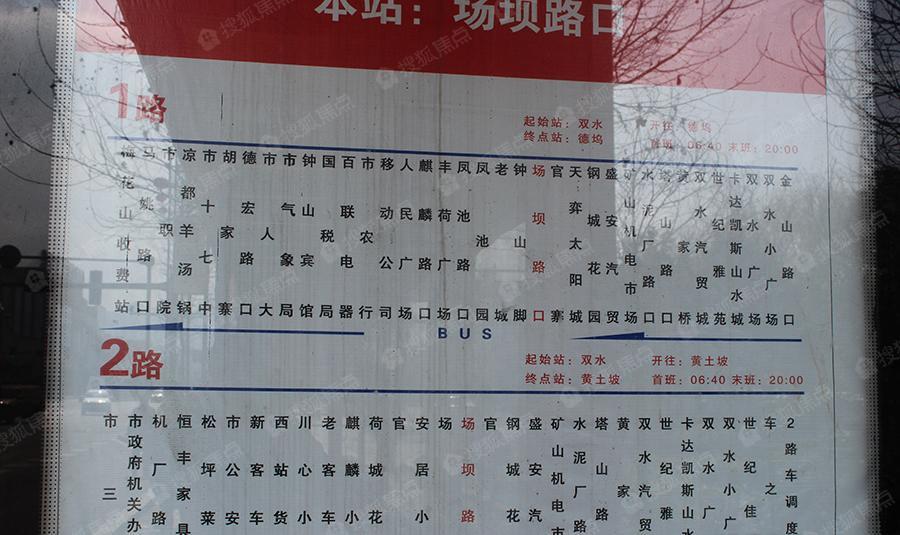 本站：场坝路口
1路
起始站：双水 开往：德坞
终点站：德坞 首班：06:40 末班：20:00
梅花山收费站
马姚路口
市职院
凉都羊汤锅
市十七中
胡家寨
德宏路口
市人大
市气象局
钟山宾馆
国税局
百联电器
市农行
移动公司
人民广场
麒麟路口
丰荷广场
凤池路口
凤池园
老城
钟山脚
场坝路口
官寨
天弈太阳城
钢城花园
盛安汽贸
矿山机电市场
水泥厂路口
塔山路口
黄家桥
双水汽贸城
世纪雅苑
卡达凯斯山水城
双水广场
双水小广场
金山路口
BUS
2路
起始站：双水 开往：黄土坡
终点站：黄土坡 首班：06:40 末班：20:00
市三
市政府机关办
机厂路
恒丰家具
松坪菜
市公安
新客车
西站货
川心小
老客车
麒麟小
荷城花
官
安居小
场
场坝路
官
钢城花
盛安汽
矿山机电
水泥厂
塔山路
黄家
双水汽贸
世纪雅
卡达凯斯山
双水广
双水小广
世纪佳
车之
2路车调度